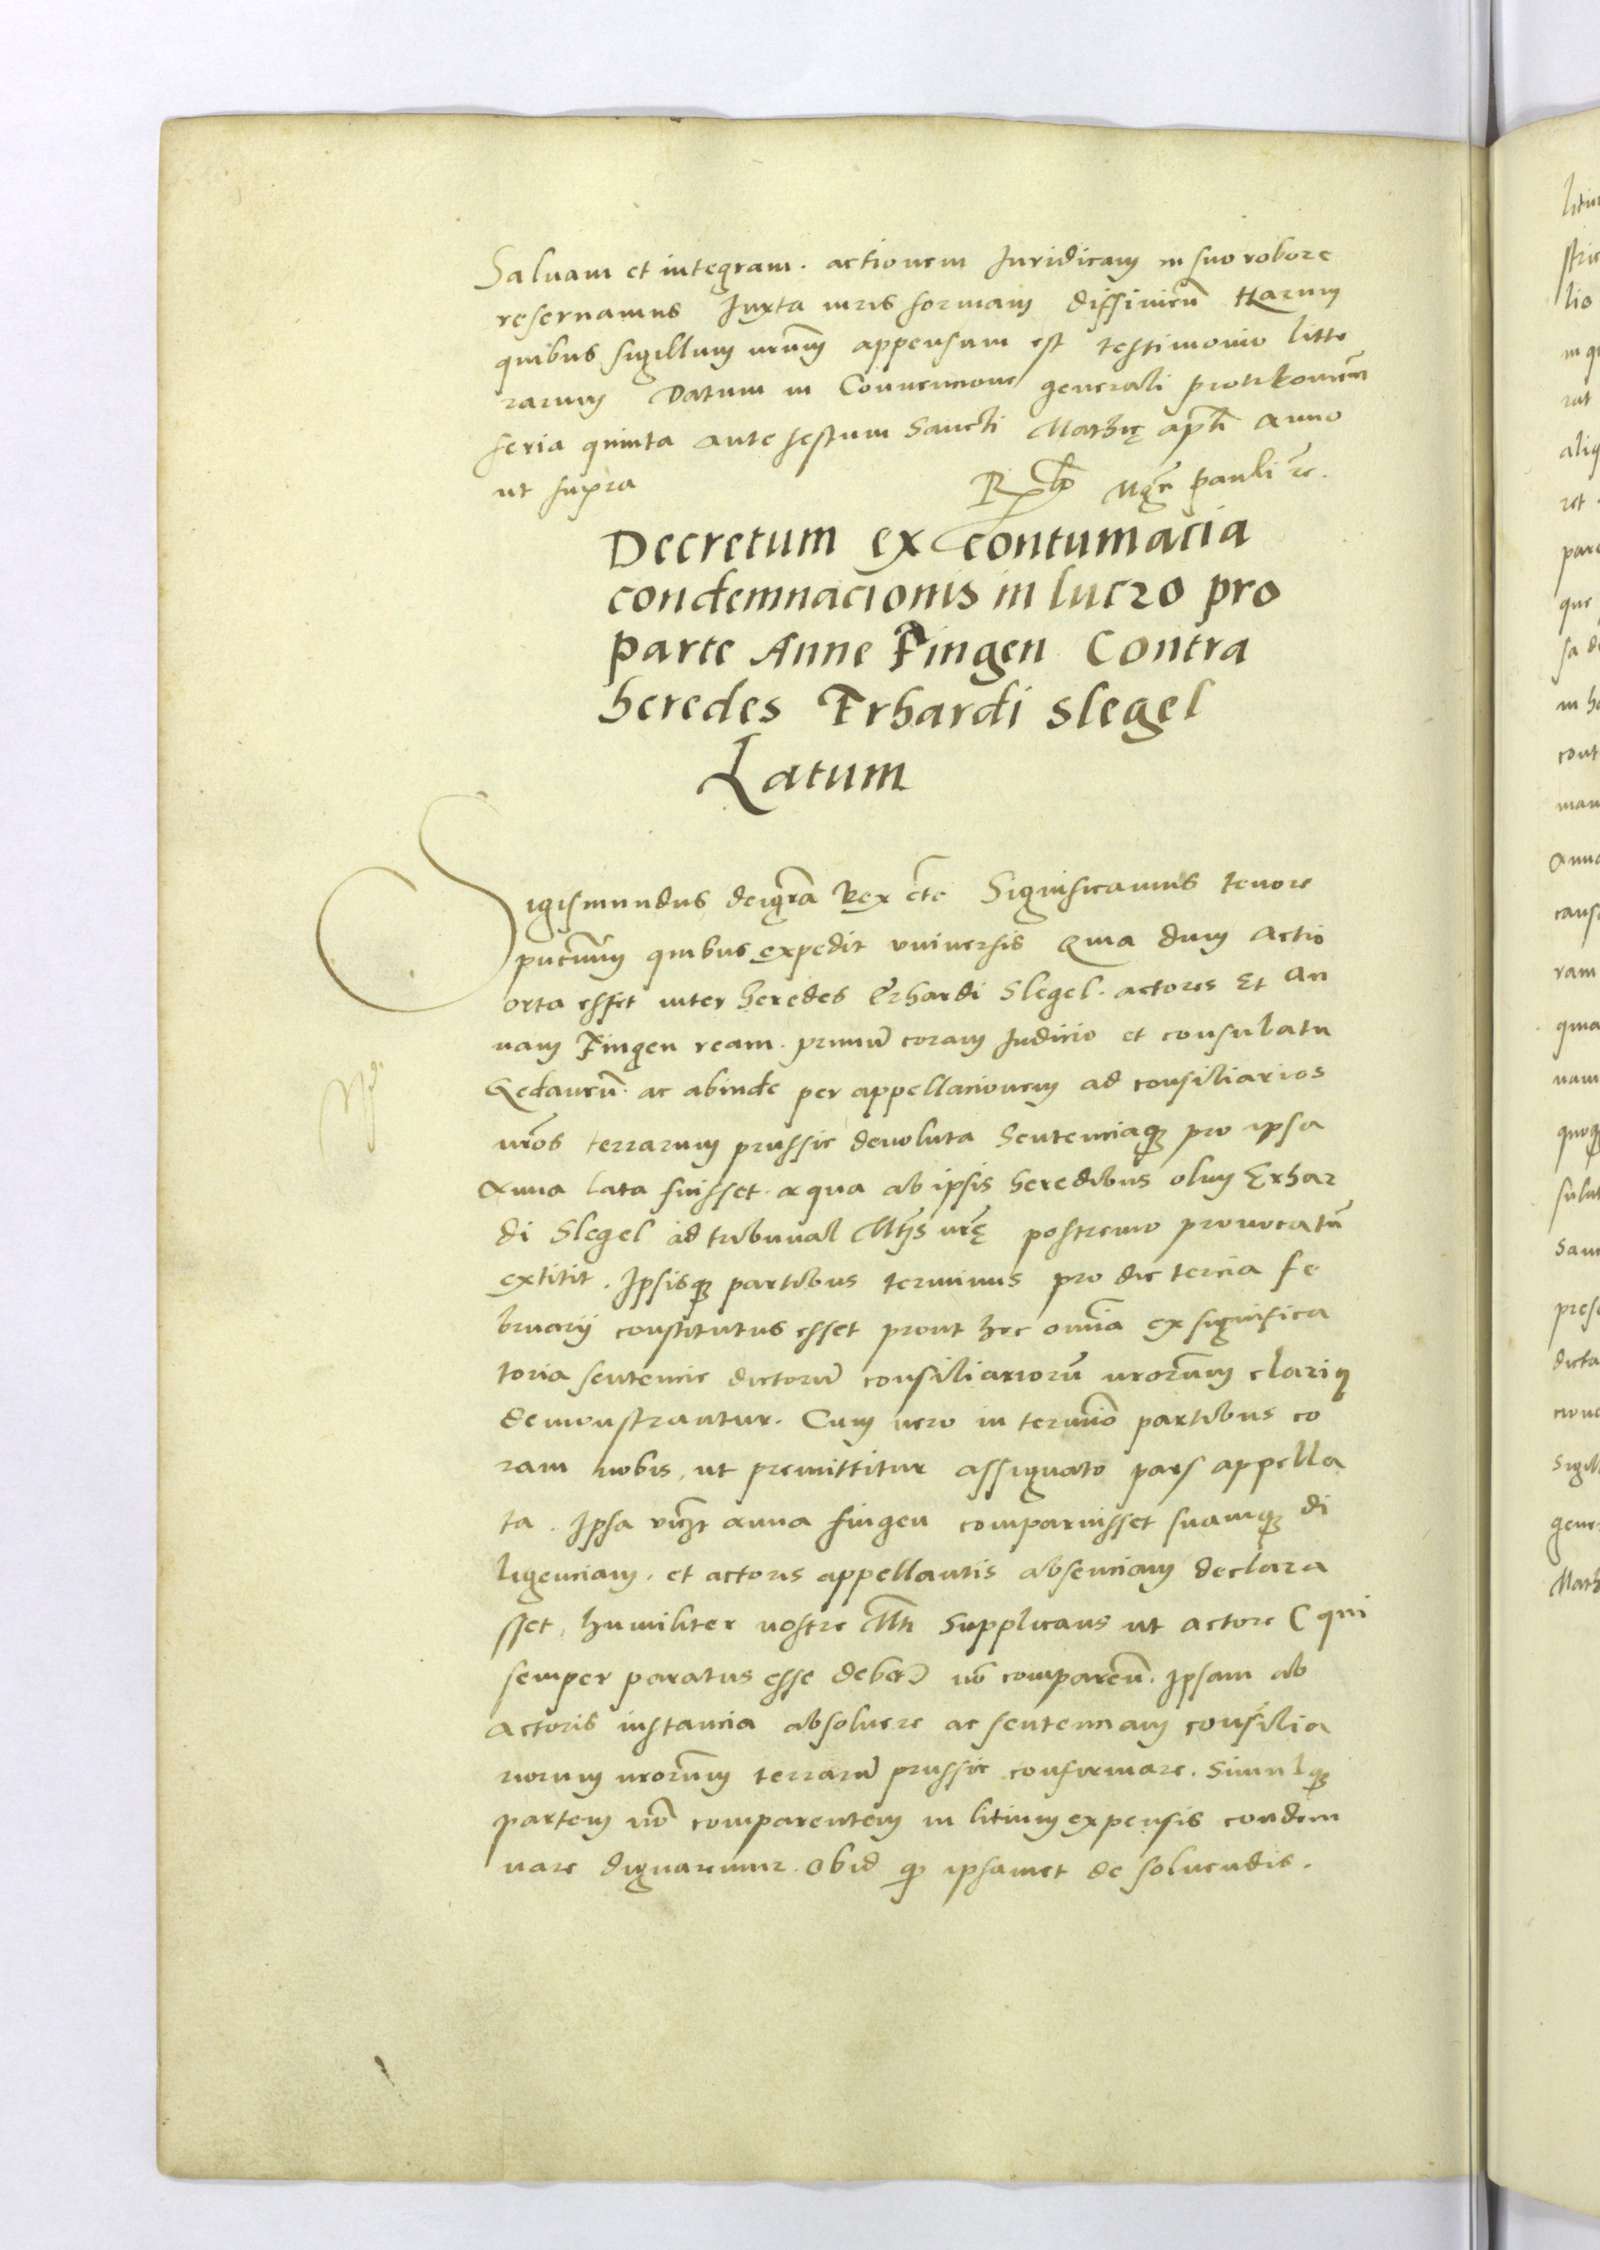 Saluam et integram. actionem Iuridicam in suo robore
reseruamus Iuxta iuris formam diffiniend̄ Harum
quibus sigillum nrum̄ appensum est testimonio litte
rarum Datum in Conuencione generali piotrkouien̄
feria quinta ante festum Sancti Mathię apłi Anno
ut supra
Decretum ex contumacia
condemnacionis in lucro pro
parte Anne Fingen Contra
heredes Erhardi Slegel
Latum
Sigismundus dei gra̅ Rex etc̄ Significamus tenore
pn̄cium quibus expedit vniuersis Quia dum Actio
orta esset inter heredes Erhardi Slegel. actores Et An
nam Fingen ream. primu̅ coram Iudicio et consulatu
Gedanen̄. ac abinde per appellacionem ad consiliarios
nr̅os terrarum prussie deuoluta Sentenciaqꝫ pro ipsa
Anna lata fuisset. a qua ab ipsis heredibus olim Erhar
di Slegel ad tribunal Mt̄is nr̅ę postremo prouocatu̅
extitit. Ipsisqꝫ partibus terminus pro die tercia fe
bruarij constitutus esset prout hec omi̅a ex significa
toria sentencie dictoru̅ consiliarioru̅ nrorum̅ clariꝰ
demonstrantur. Cum vero in termi̅o partibus co
ram nobis, ut premittitur assignato pars appella
ta. Ipsa vicꝫt Anna fingen comparuisset suamqꝫ di
ligenciam. et actoris appellantis absenciam declara
sset, humiliter nostre Mti̅ Supplicans ut actore (qui
semper paratus esse deber̅) no̅ comparen̄. Ipsam ab
actoris instancia absoluere ac sentenciam consilia
riorum nrorum̅ terraru̅ prussie confirmare. Simulqꝫ
partem no̅ comparentem in litium expensis condem
nare dignaremur. Obid qꝫ ipsamet de soluendis.